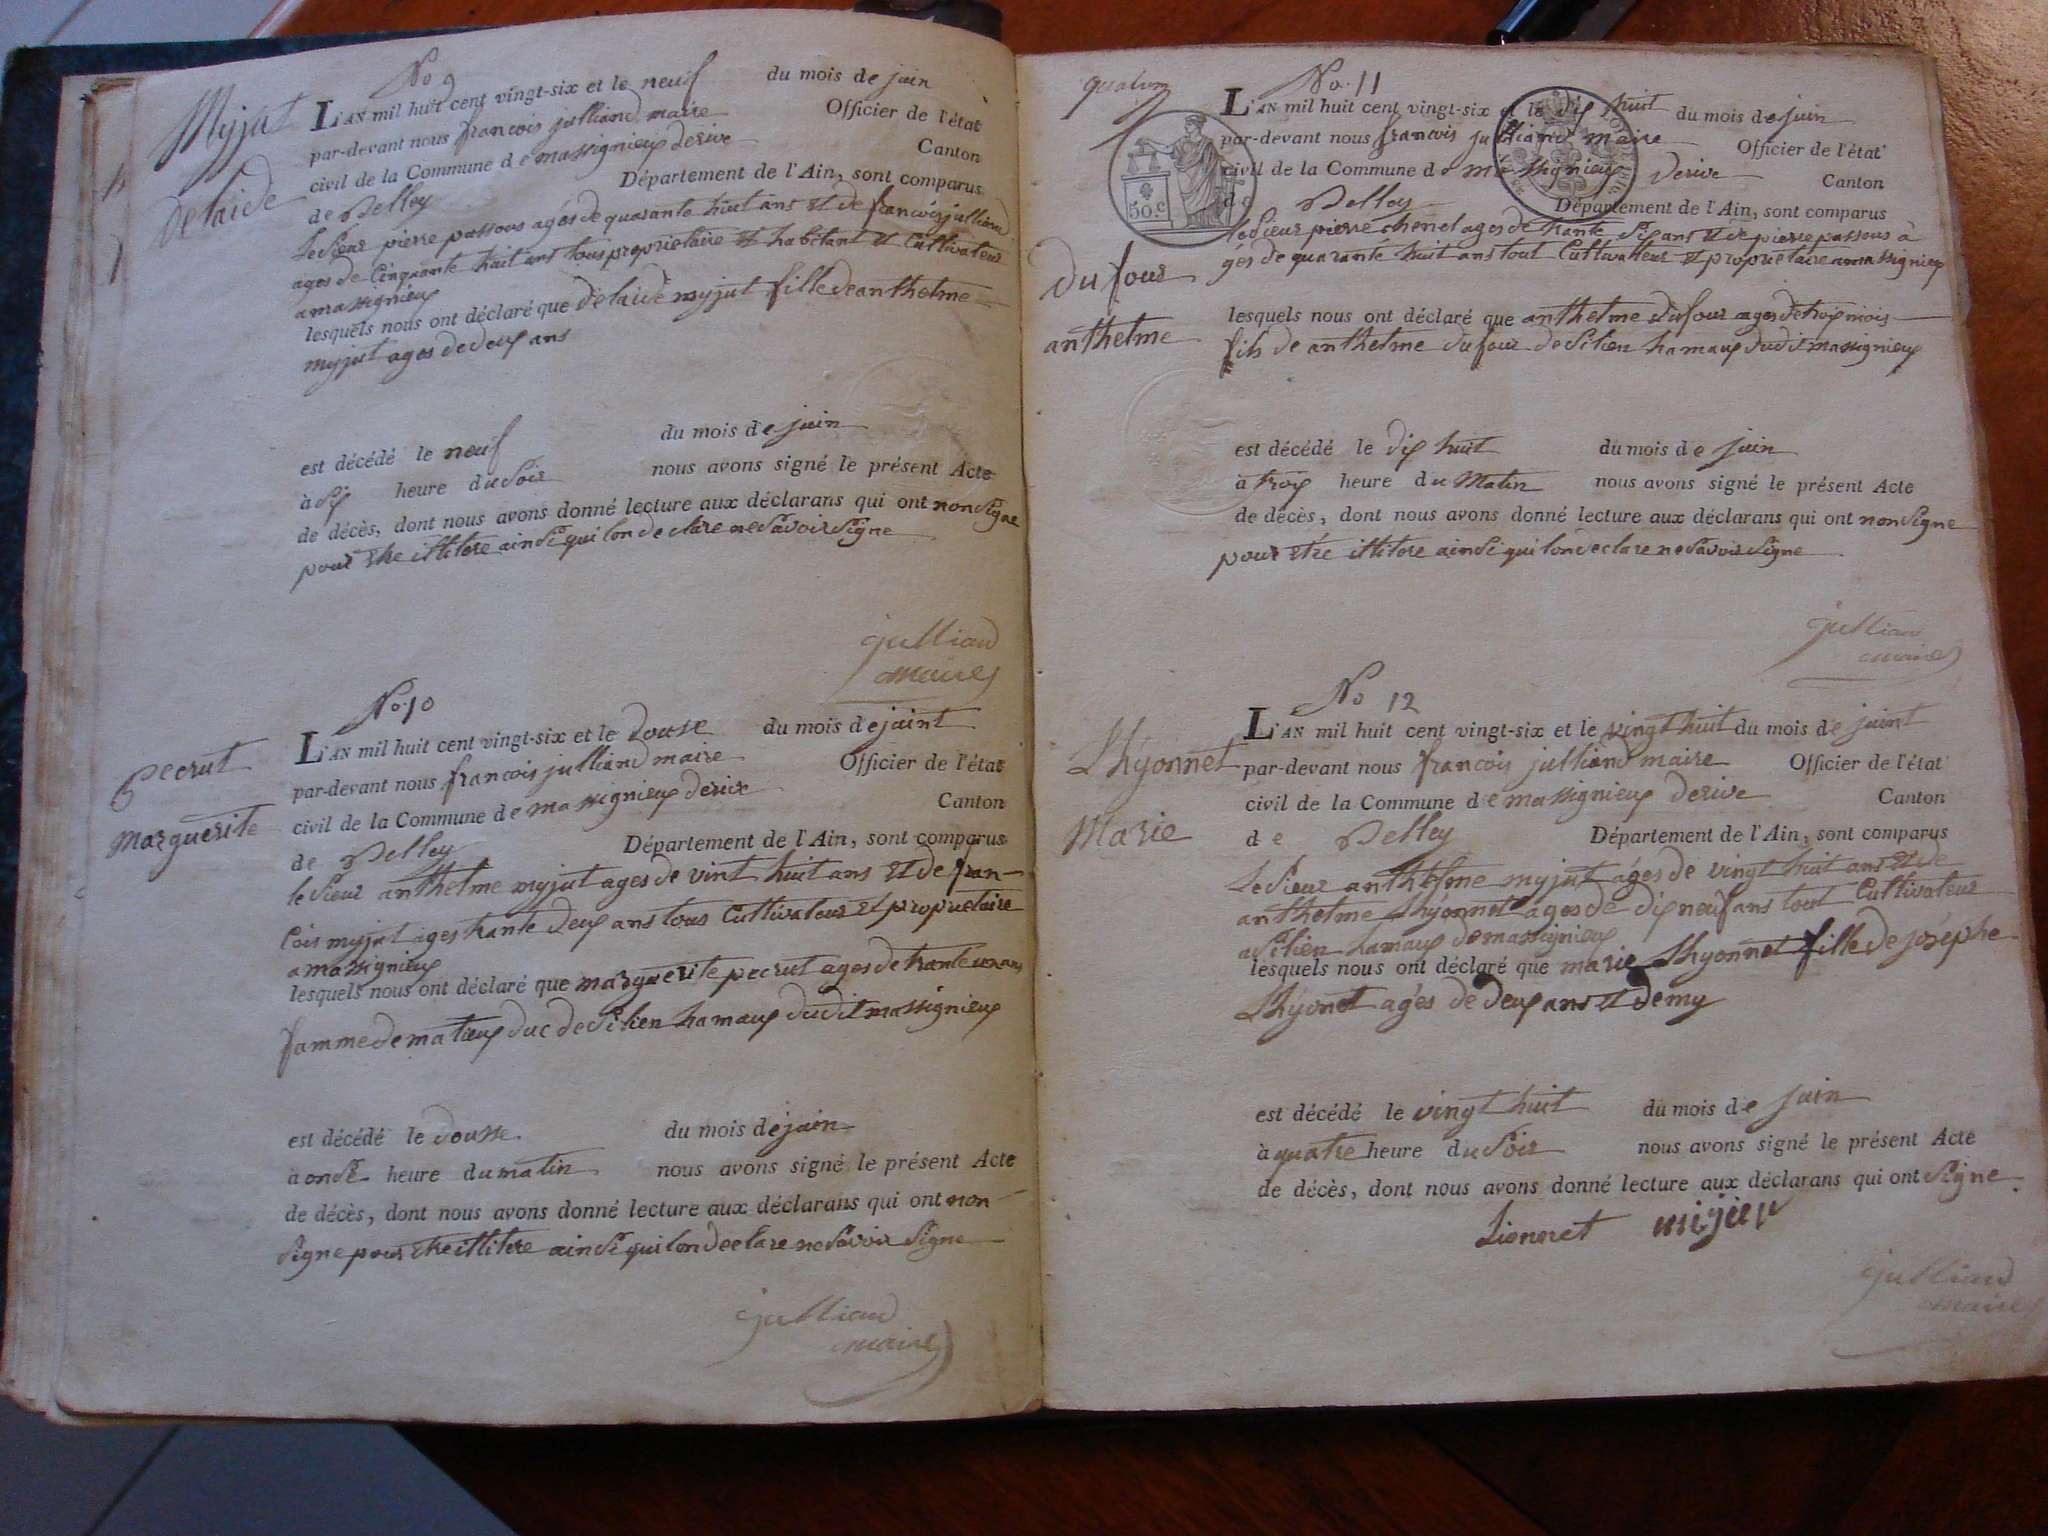 No 9
Myjut
Delaide
L'AN mil huit cent vingt-six et le neuf du mois de juin
par-devant nous francois julliand maire Officier de l'état
civil de la Commune de massignieux derive Canton
de Belley Département de l'Ain, sont comparus
le Sieur pierre passous agés de quarante huit ans et de francois julliand
ages de Cinquante huit ans tous proprietaire et habitant et Cultivateur
a massignieux
lesquels nous ont déclaré que délaide myjut fille de anthelme
myjut ages de deux ans
est décédé le neuf du mois de juin
à Six heure du Soir nous avons signé le présent Acte
de décès, dont nous avons donné lecture aux déclarans qui ont non Signe
pour etre illitere ainsi qui lon declare ne Savoir Signe
julliand
maire
No 10
Pecrut
Marguerite
L'AN mil huit cent vingt-six et le douse du mois de juint
par-devant nous francois julliand maire Officier de l'état
civil de la Commune de massignieux derive Canton
de Belley Département de l'Ain, sont comparus
le Sieur anthelme myjut ages de vint huit ans et de fran-
cois myjut ages trante deux ans tous Cultivateur et proprietaire
a massignieux
lesquels nous ont déclaré que marguerite pecrut ages de trante un ans
famme de matieux duc de Silien hamaux dudit massignieux
est décédé le dousse du mois de juin
à onse heure du matin nous avons signé le présent Acte
de décès, dont nous avons donné lecture aux déclarans qui ont non
Signe pour etre illitere ainsi qui lon declare ne Savoir Signe
julliand
maire
No. 11
Dufour
anthelme
50.c
L'AN mil huit cent vingt-six et le dix huit du mois de juin
par-devant nous francois julliand maire Officier de l'état
civil de la Commune de massignieux derive Canton
de Belley Département de l'Ain, sont comparus
le Sieur pierre chenel ages de trante Six ans et de pierre passous à
gés de quarante huit ans tout Cultivateur et proprietaire a massignieux
lesquels nous ont déclaré que anthelme dufour ages de troix mois
fils de anthelme dufour de Silien hamaux dudit massignieux
est décédé le dix huit du mois de juin
à troix heure du Matin nous avons signé le présent Acte
de décès, dont nous avons donné lecture aux déclarans qui ont non Signe
pour etre illitere ainsi qui lon declare ne Savoir Signe
julliand
maire
No 12
Lhyonnet
Marie
L'AN mil huit cent vingt-six et le vingt huit du mois de juint
par-devant nous francois julliand maire Officier de l'état
civil de la Commune de massignieux derive Canton
de Belley Département de l'Ain, sont comparus
le Sieur anthelme myjut ágés de vingt huit ans et de
anthelme Lhyonnet ages de dix neuf ans tout Cultivateur
a Silien hamaux de massignieux
lesquels nous ont déclaré que marie Lhyonnet fille de joséphe
Lhyonet agés de deux ans et demy
est décédé le vingt huit du mois de juin
à quatre heure du Soir nous avons signé le présent Acte
de décès, dont nous avons donné lecture aux déclarans qui ont Signe
Lionnet mijeux
julliand
maire